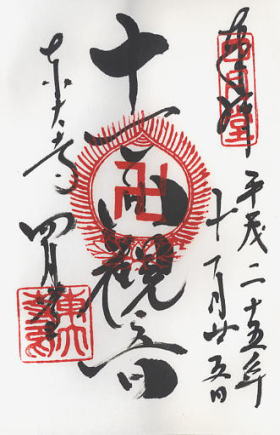 奉拝
平成二十五年
十一月廿五日
十一面觀音
卍
東大寺 四月堂